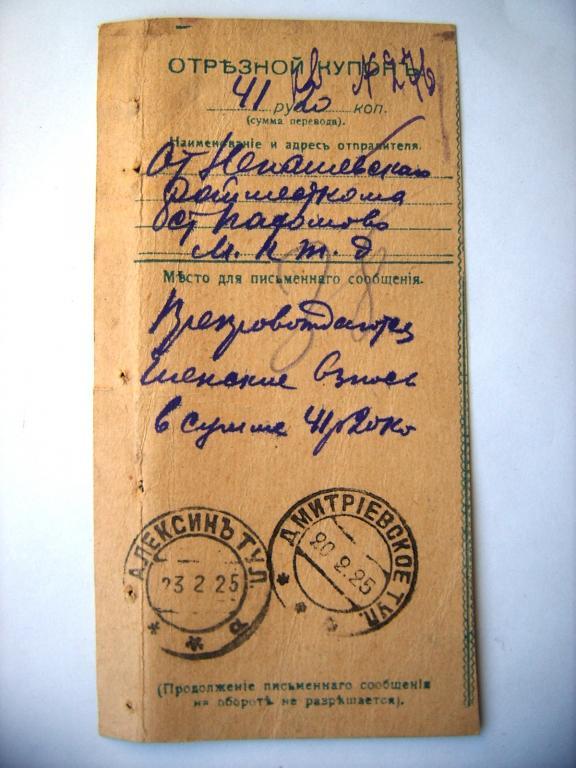 ОТРѢЗНОЙ КУПОНЪ № 276
41 ру 20 коп.
(сумма перевода).
Наименованіе и адресъ отправителя.
От
ст
М. К. ж. д
Мѣсто для письменнаго сообщенія.
Препровождаются
членские взносы
в сумме 41р20ко
АЛЕКСИНЪ ТУЛ.
23 2 25
ДМИТРІЕВСКОЕ ТУЛ.
20 2.25
(Продолженіе письменнаго сообщенія
на оборотѣ не разрѣшается).